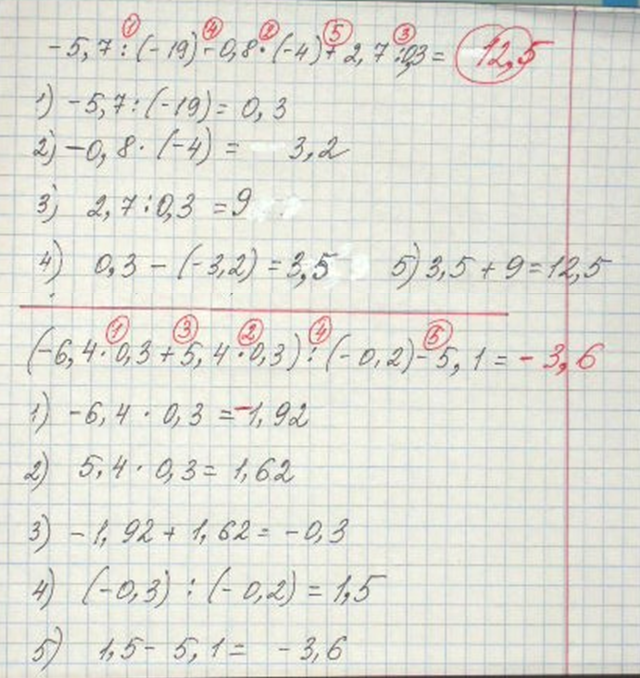 1 4 2 5 3
-5,7:(-19)-0,8·(-4)+2,7:0,3= 12,5
1) -5,7:(-19)=0,3
2) -0,8·(-4) = 3,2
3) 2,7:0,3 =9
4) 0,3-(-3,2)=3,5 5) 3,5+9=12,5
1 3 2 4 5
(-6,4·0,3+5,4·0,3):(-0,2)-5,1=-3,6
1) -6,4·0,3=-1,92
2) 5,4·0,3=1,62
3) -1,92+1,62=-0,3
4) (-0,3):(-0,2)=1,5
5) 1,5-5,1= -3,6